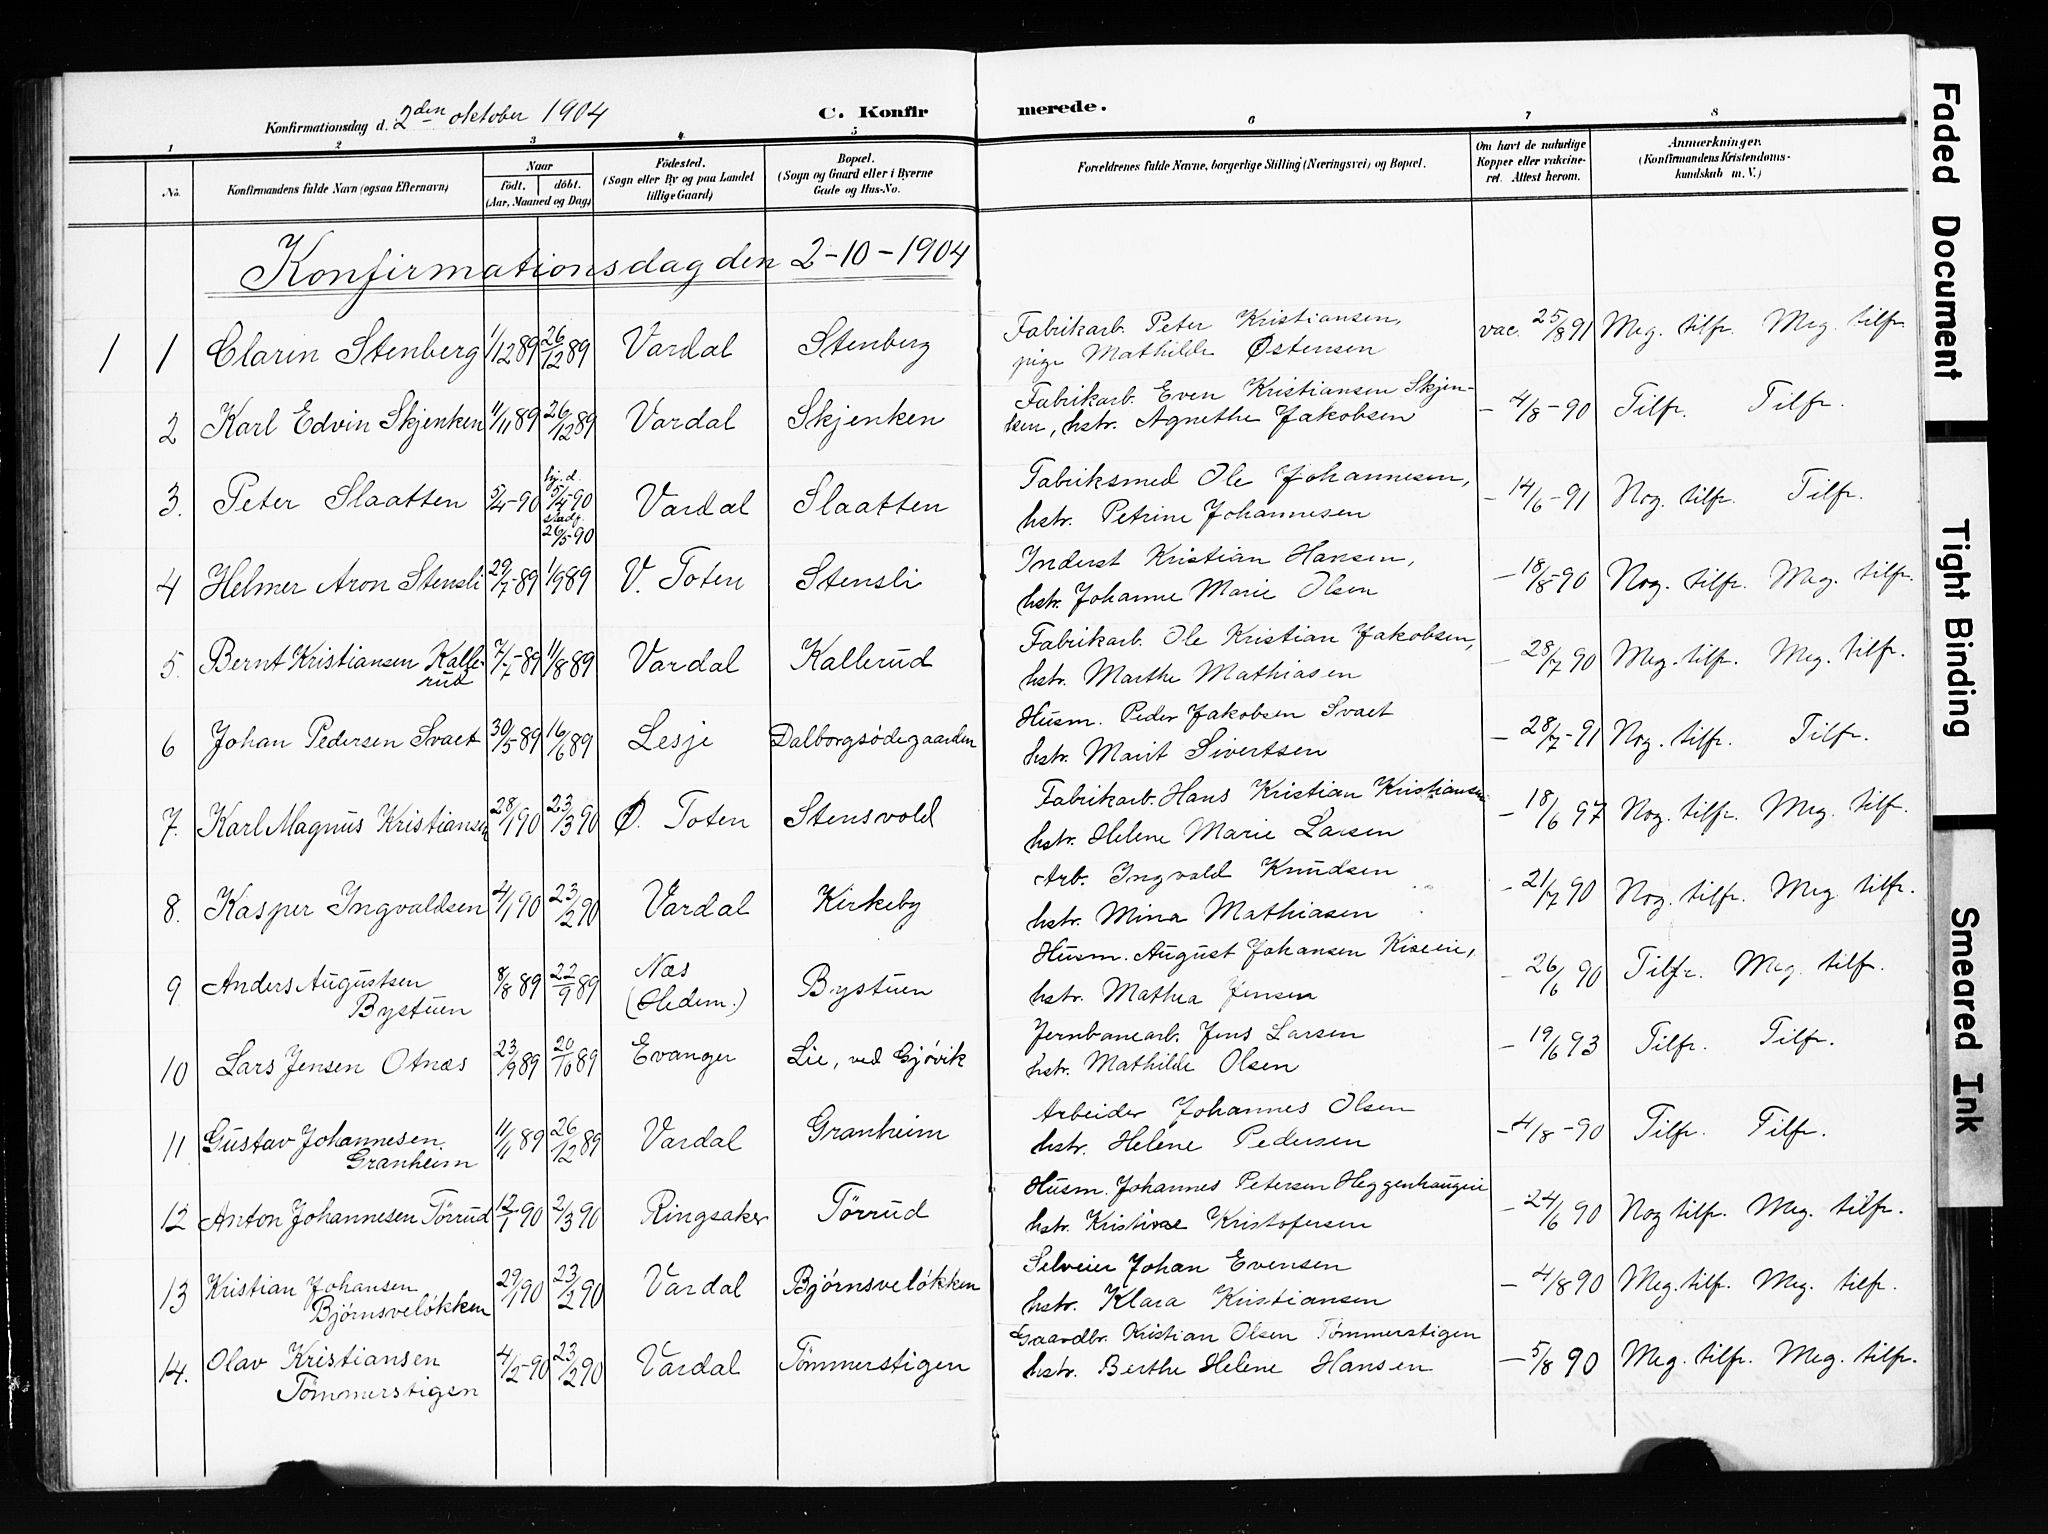 Konfirmationsdag d. 2den oktober 1904 C. Konfirmerede.
1 2 3 4 5 6 7 8
No. Konfirmandens fulde Navn (ogsaa Efternavn) Naar født. døbt. (Aar, Maaned og Dag) Fødested. (Sogn eller By og paa Landet tillige Gaard) Bopæl. (Sogn og Gaard eller i Byerne Gade og Hus-No. Forældrenes fulde Navne, borgerlige Stilling (Næringsvei) og Bopæl. Om havt de naturlige Kopper eller vakcineret. Attest herom. Anmærkninger. (Konfirmandens Kristendomskundskab m. V.)
Konfirmationsdag den 2-10-1904
1 1 Clarin Stenberg 1/12 89 26/12 89 Vardal Stenberg Fabrikarb. Peter Kristiansen, vac. 25/8 91 Meg. tilfr. Meg. tilfr.
pige Mathilde Østensen
2 Karl Edvin Skjenken 11/11 89 26/12 89 Vardal Skjenken Fabrikarb. Even Kristiansen Skjen- - 4/8-90 Tilfr. Tilfr.
ken, hstr. Agnethe Jakobsen
3. Peter Slaatten 5/4-90 hj. d. 5/4-90 stadf. 26/5-90 Vardal Slaatten Fabriksmed Ole Johannesen, - 14/6-91 Nog. tilfr. Tilfr.
hstr. Petrine Johannesen
4 Helmer Aron Stensli 29/7-89 1/9 89 V. Toten Stensli Inderst Kristian Hansen, - 18/8-90 Nog. tilfr. Meg. tilfr.
hstr. Johanne Marie Olsen
5. Bernt Kristiansen Kalle- 7/7-89 11/8 89 Vardal Kallerud Fabrikarb. Ole Kristian Jakobsen, - 28/7 90 Meg. tilfr. Meg. tilfr.
rud hstr. Marthe Mathiasen
6 Johan Pedersen Svaet 30/5 89 16/6 89 Lesje Dalborgsödegaarden Husm. Peder Jakobsen Svaet - 28/7-91 Nog. tilfr. Tilfr.
hstr. Marit Sivertsen
7. Karl Magnus Kristiansen 28/1 90 23/3 90 Ø. Toten Stensvold Fabrikarb. Hans Kristian Kristiansen - 18/6 97 Nog. tilfr. Meg. tilf.
hstr. Helene Marie Larsen
8. Kasper Ingvaldsen 4/1 90 23/2 90 Vardal Kirkeby Arb. Ingvald Knudsen - 21/7 90 Nog. tilfr. Meg tilfr.
hstr. Mina Mathiasen
9 Anders Augustsen 8/8 89 22/9 89 Næs Bystuen Husm. August Johansen Kiseie, - 26/6 90 Tilfr. Meg. tilfr.
Bystuen (Hedem.) hstr. Mathea Jensen
10 Lars Jensen Otnæs 23/9 89 20/10 89 Evanger Lie, ved Gjövik Jernbanearb. Jens Larsen - 19/6 93 Tilfr. Tilfr.
hstr. Mathilde Olsen
11 Gustav Johannesen 11/11 89 26/12 89 Vardal Granheim Arbeider Johannes Olsen - 4/8-90 Tilfr. Tilfr.
Granheim hstr. Helene Pedersen
12 Anton Johannesen Törrud 12/1 90 2/3 90 Ringsaker Törrud Husm. Johannes Petersen Heggenhaugeie - 24/6 90 Nog tilfr. Meg. tilfr.
hstr. Kristine Kristofersen
13 Kristian Johansen 29/1 90 23/2 90 Vardal Bjørnsveløkken Selveier Johan Evensen - 4/8 90 Meg. tilfr. Meg. tilfr.
Bjørnsveløkken hstr. Klara Kristiansen
14. Olav Kristiansen 4/2-90 23/2 90 Vardal Tömmerstigen Gaardbr. Kristian Olsen Tømmerstigen - 5/8 90 Meg. tilfr. Meg. tilfr.
Tömmerstigen hstr. Berthe Helene Hansen
Faded Document
Tight Binding
Smeared Ink